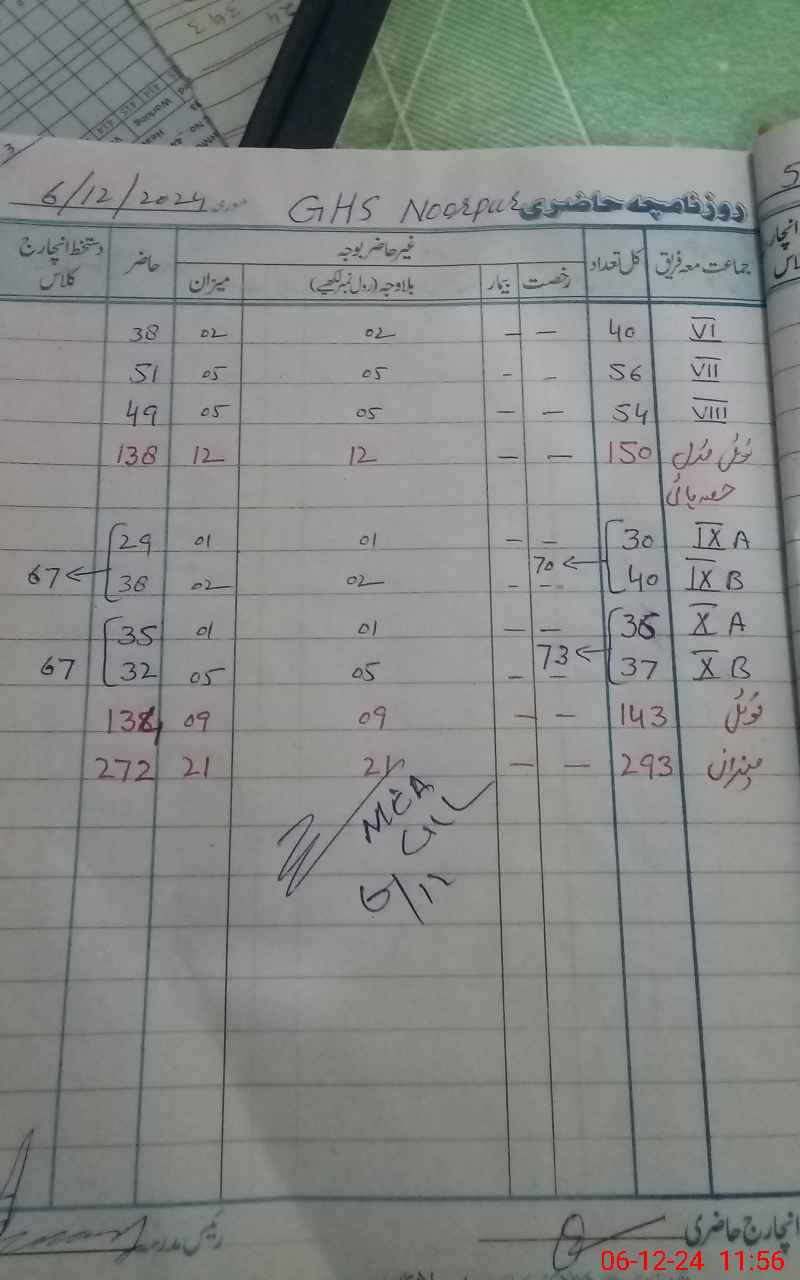 روزنامچہ حاضری GHS Noorpur مورخہ 6/12/2024
جماعت معہ فریق کل تعداد غیر حاضر بوجہ حاضر دستخط انچارج کلاس
رخصت بیمار بلاوجہ (رول نمبر لکھیے) میزان
VI 40 — — 02 02 38
VII 56 – – 05 05 51
VIII 54 — — 05 05 49
ٹوٹل مڈل 150 — — 12 12 138
حصہ ہائی
IX A 30 – – 01 01 29
70 ← 67 ←
IX B 40 – – 02 02 38
X A 36 – – 01 01 35
73 ← 67
X B 37 – – 05 05 32
ٹوٹل 143 – – 09 09 134
میزان 293 — — 21 21 272
MEA
6/12
انچارج حاضری رئیس مدرسہ
06-12-24 11:56